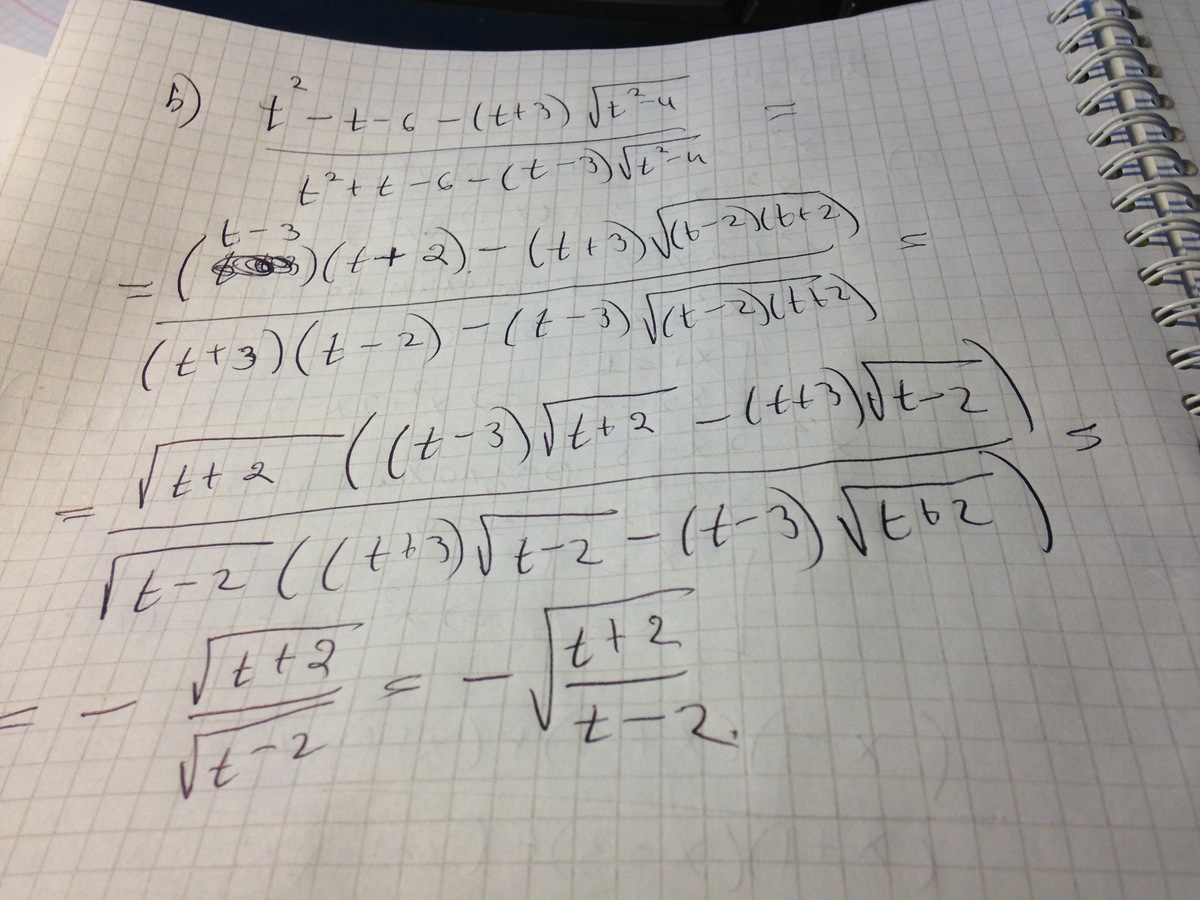 б) (t² - t - 6 - (t+3)√(t²-4)) / (t² + t - 6 - (t-3)√(t²-4)) =
= ((t-3)(t+2) - (t+3)√((t-2)(t+2))) / ((t+3)(t-2) - (t-3)√((t-2)(t+2))) =
= (√(t+2) ((t-3)√(t+2) - (t+3)√(t-2))) / (√(t-2) ((t+3)√(t-2) - (t-3)√(t+2))) =
= - √(t+2) / √(t-2) = - √((t+2)/(t-2)).